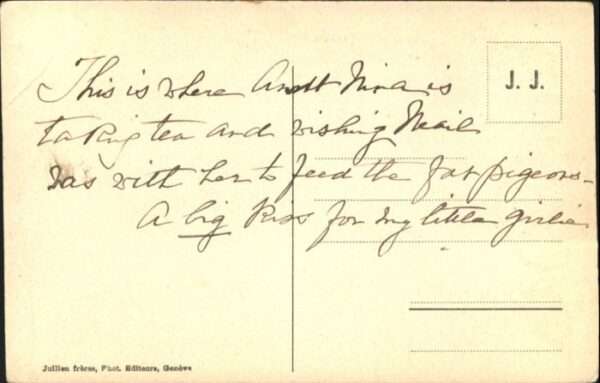 This is where Aunt Nina is
J. J.
taking tea and wishing Neail
was with her to feed the fat pigeons-
A big Kiss for my little girlie
Jullien frères, Phot. Editeurs, Genève